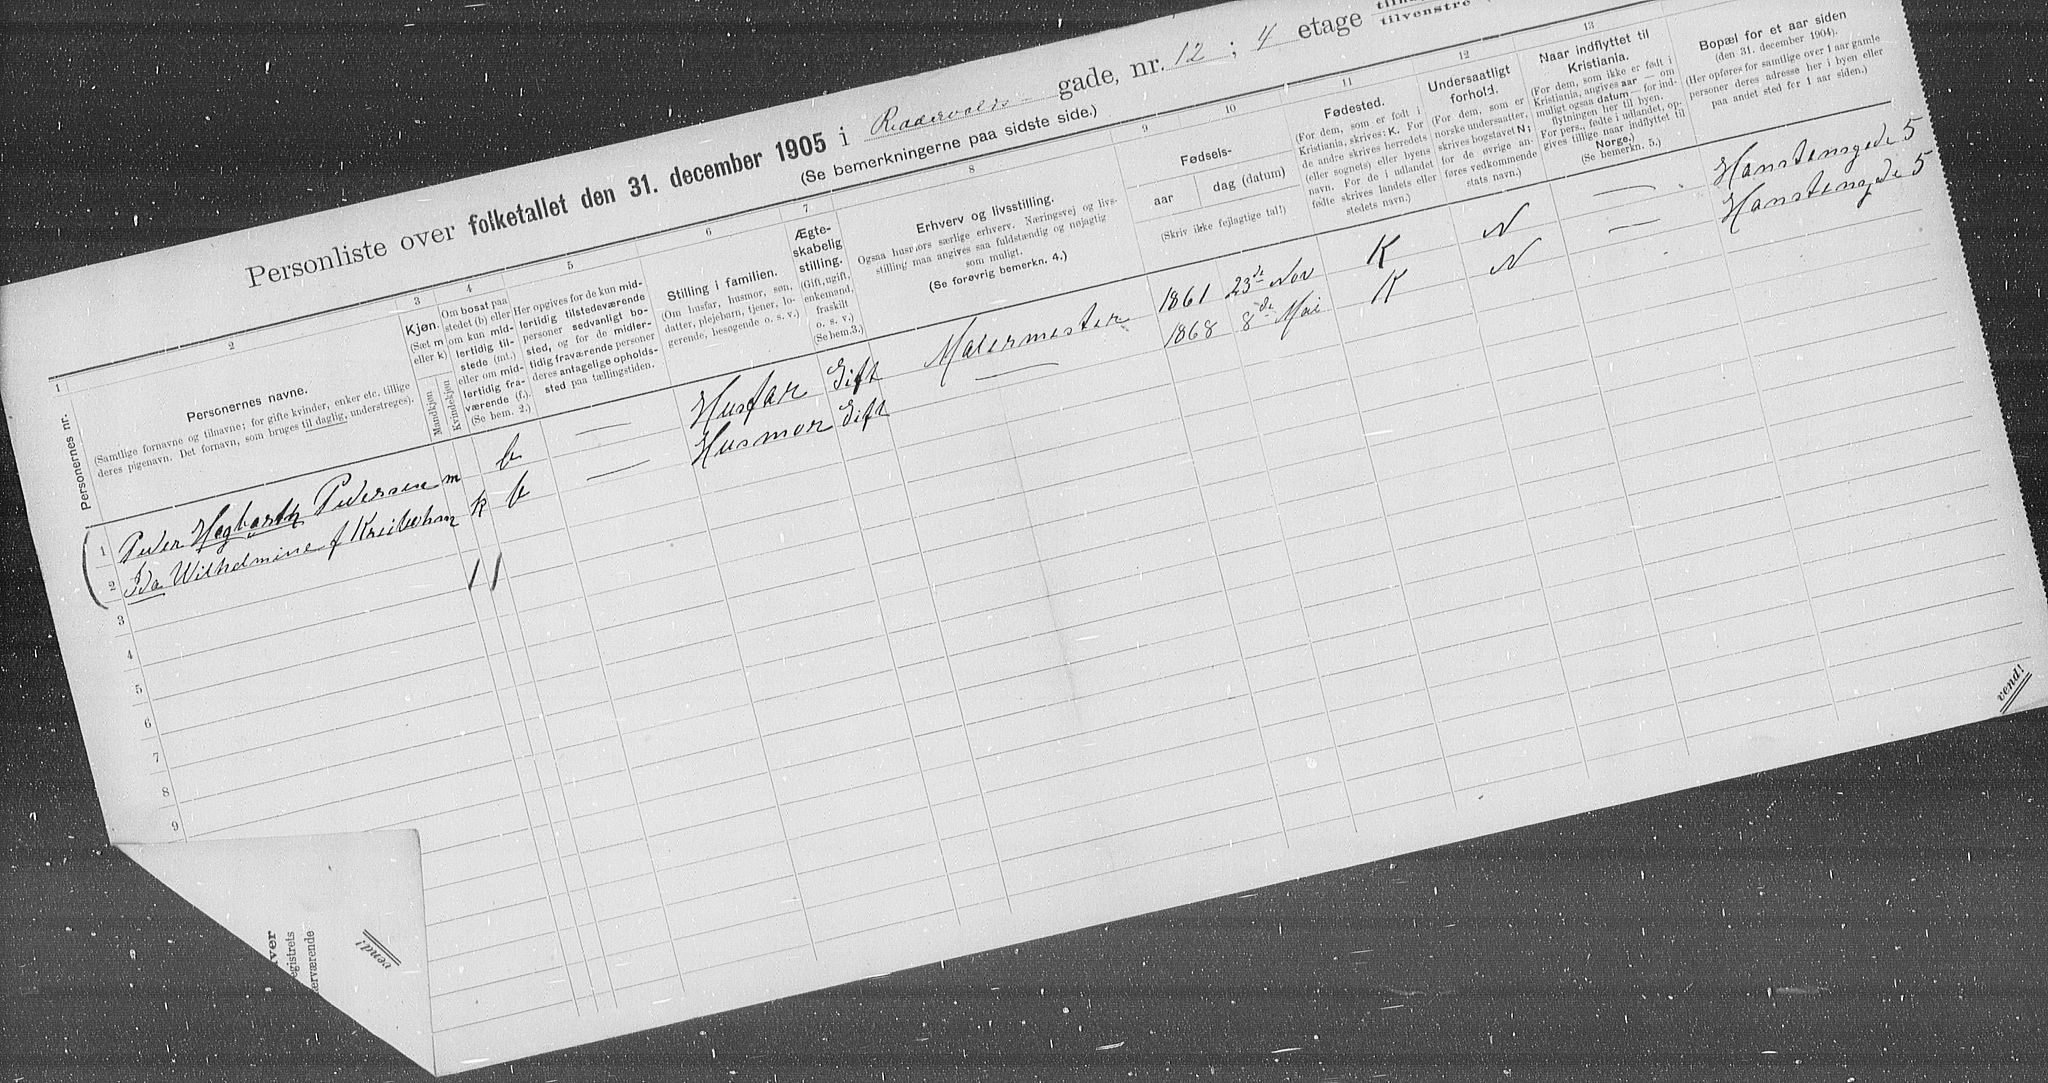 Personliste over folketallet den 31. december 1905 i Riddervolds gade, nr. 12 ; 4 etage tilvenstre
(Se bemerkningerne paa sidste side.)
1
Personernes nr.
2
Personernes navne.
(Samtlige fornavne og tilnavne; for gifte kvinder, enker etc. tillige
deres pigenavn. Det fornavn, som bruges til daglig, understreges).
3
Kjøn.
(Sæt m
eller k)
Mandkjøn
Kvindekjøn
4
Om bosat paa
stedet (b) eller
om kun mid-
lertidig til-
stede (mt.)
eller om mid-
lertidig fra-
værende (f.).
(Se bem. 2.)
5
Her opgives for de kun mid-
lertidig tilstedeværende
personer sedvanligt bo-
sted, og for de midler-
tidig fraværende personer
deres antagelige opholds-
sted paa tællingstiden.
6
Stilling i familien.
(Om husfar, husmor, søn,
datter, plejebarn, tjener, lo-
gerende, besøgende o. s. v.)
7
Ægte-
skabelig
stilling.
(Gift, ugift,
enkemand,
fraskilt
o. s. v.)
(Se bem. 3.)
8
Erhverv og livsstilling.
Ogsaa husmors særlige erhverv. Næringsvej og livs-
stilling maa angives saa fuldstændig og nøjagtig
som muligt.
(Se forøvrig bemerkn. 4.)
9
10
Fødsels-
aar
dag (datum)
(Skriv ikke fejlagtige tal!)
11
Fødested.
(For dem, som er født i
Kristiania, skrives: K. For
de andre skrives herredets
(eller sognets) eller byens
navn. For de i udlandet
fødte skrives landets eller
stedets navn.)
12
Undersaatligt
forhold.
(For dem, som er
norske undersaatter,
skrives bogstavet N;
for de øvrige an-
føres vedkommende
stats navn.)
13
Naar indflyttet til
Kristiania.
(For dem, som ikke er født i
Kristiania, angives aar — om
muligt ogsaa datum — for ind-
flytningen her til byen.
For pers., fødte i udlandet, op-
gives tillige naar indflyttet til
Norge.)
(Se bemerkn. 5.)
Bopæl for et aar siden
(den 31. december 1904).
(Her opføres for samtlige over 1 aar gamle
personer deres adresse her i byen eller
paa andet sted for 1 aar siden.)
1 Peder Hagbarth Pedersen m b — Husfar Gift Malermester 1861 23de Nov K N — Hanstensgade 5
2 Ida Wilhelmine f Kreibohm k b — Husmor Gift — 1868 8de Mai K N — Hanstensgade 5
3 1 1
4
5
6
7
8
9
vend!
egistrets
ærværende
vend!